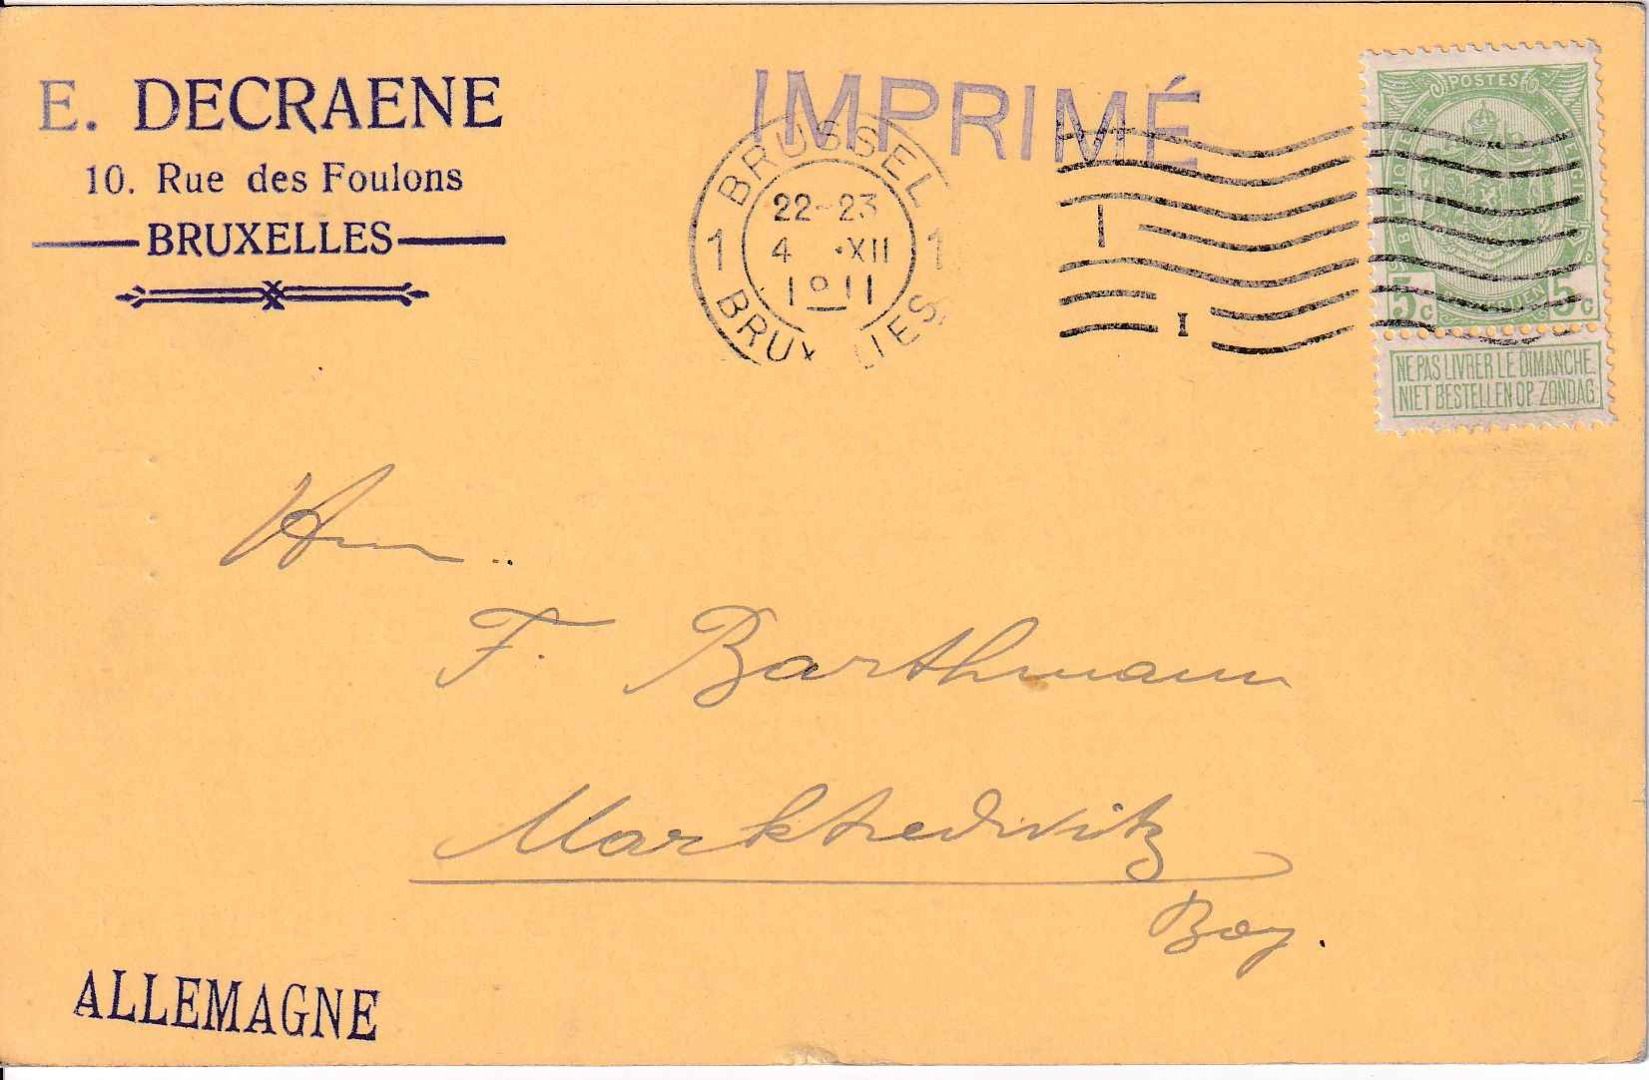 E. DECRAENE
10. Rue des Foulons
BRUXELLES
IMPRIMÉ
BRUSSEL
1 22-23 1
4 ·XII
1911
BRUXELLES
I
I
POSTES
5c 5c
NE PAS LIVRER LE DIMANCHE.
NIET BESTELLEN OP ZONDAG.
Herrn
F. Barthmann
Marktredwitz
Bay.
ALLEMAGNE